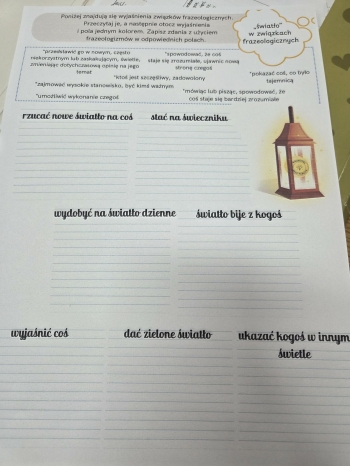 Poniżej znajdują się wyjaśnienia związków frazeologicznych.
Przeczytaj je, a następnie otocz wyjaśnienia
i pola jednym kolorem. Zapisz zdania z użyciem
frazeologizmów w odpowiednich polach.
„światło”
w związkach
frazeologicznych
*przedstawić go w nowym, często
niekorzystnym lub zaskakującym, świetle,
zmieniając dotychczasową opinię na jego
temat
*spowodować, że coś
staje się zrozumiałe, ujawnić nową
stronę czegoś
*ktoś jest szczęśliwy, zadowolony
*pokazać coś, co było
tajemnicą
*zajmować wysokie stanowisko, być kimś ważnym
*mówiąc lub pisząc, spowodować, że
coś staje się bardziej zrozumiałe
*umożliwić wykonanie czegoś
rzucać nowe światło na coś
stać na świeczniku
wydobyć na światło dzienne
światło bije z kogoś
wyjaśnić coś
dać zielone światło
ukazać kogoś w innym
świetle